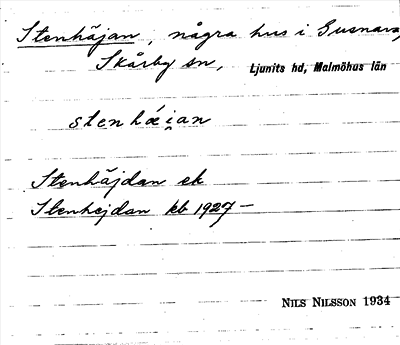 Stenhäjan, några hus i Gusnava,
Skårby sn, Ljunits hd, Malmöhus län
stenhǽi̯an
Stenhäjdan ek
Stenhejdan kb 1927 –
NILS NILSSON 1934